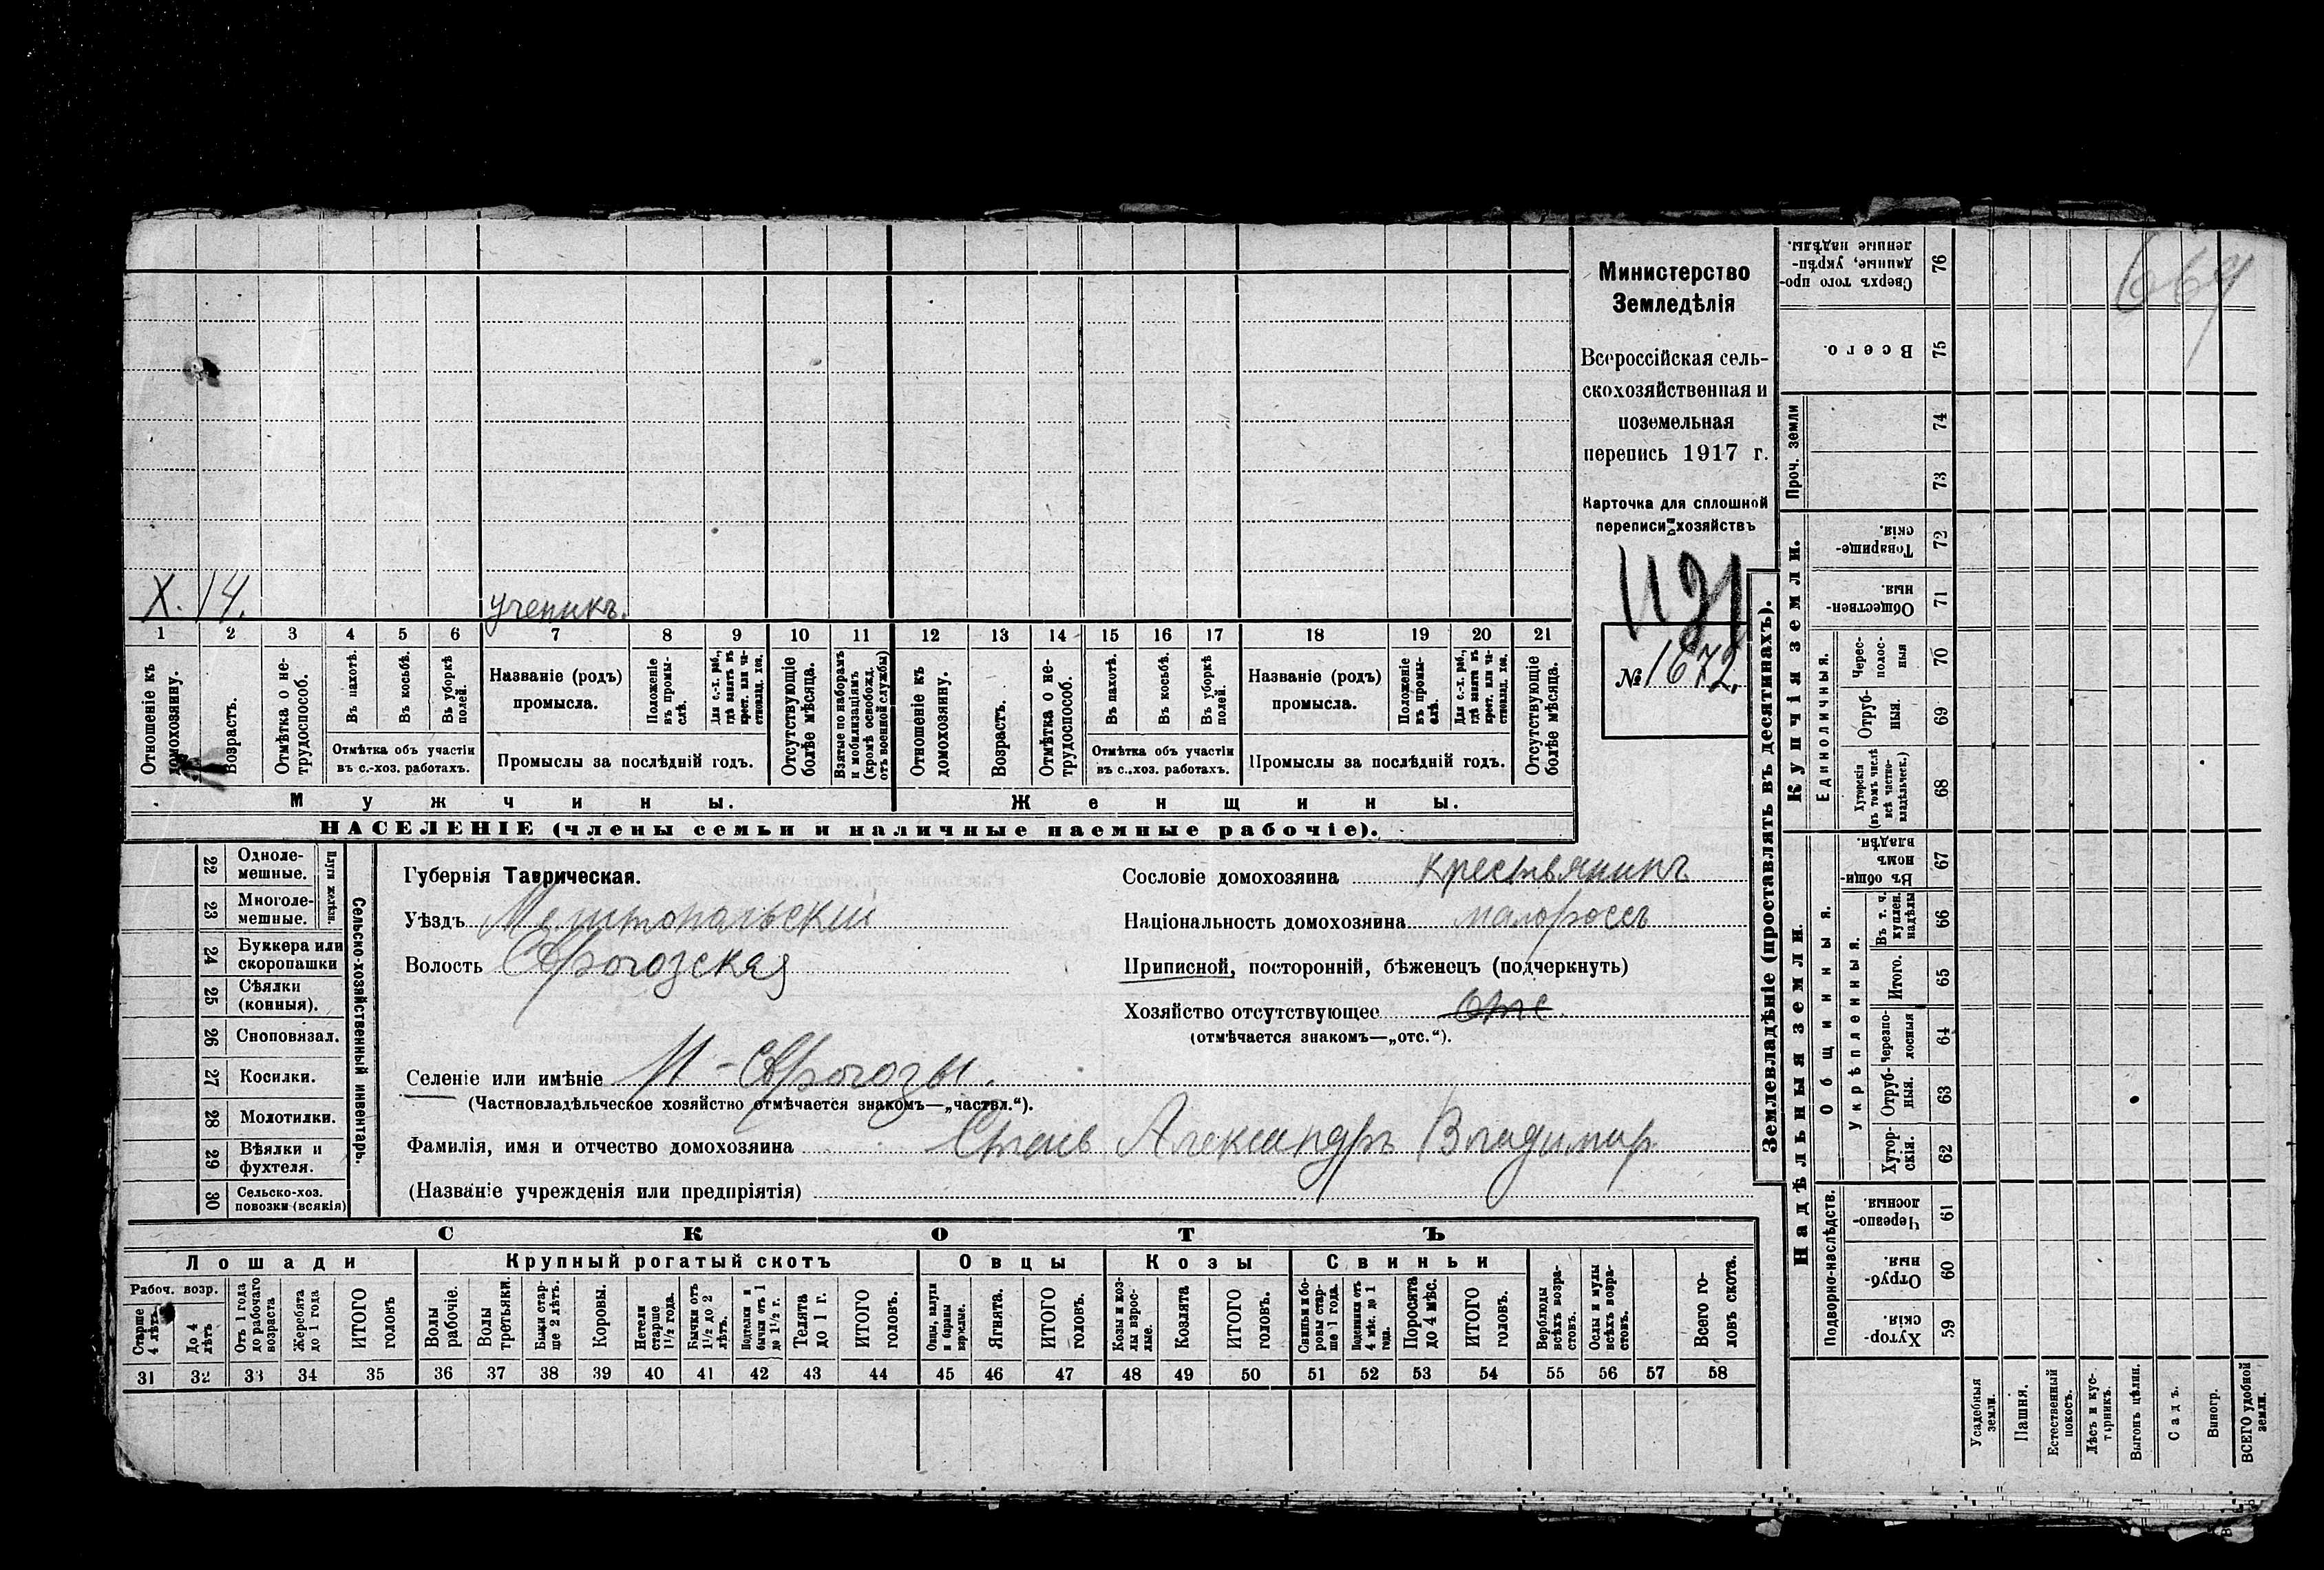 669
Министерство
Земледѣлія
Всероссійская сель-
скохозяйственная и
поземельная
перепись 1917 г.
Карточка для сплошной
переписи хозяйствъ
№ 1672.
X. 14. ученикъ.
1 2 3 4 5 6 7 8 9 10 11 12 13 14 15 16 17 18 19 20 21
Отношеніе къ домохозяину.
Возрастъ.
Отмѣтка о не-трудоспособ.
Въ пахотѣ.
Въ косьбѣ.
Въ уборкѣ полей.
Отмѣтка объ участіи
въ с.-хоз. работахъ.
Названіе (родъ)
промысла.
Положеніе въ промы-слѣ.
Для с.-х. раб., гдѣ занятъ въ крест. или ча-стновлад. хоз.
Промыслы за послѣдній годъ.
Отсутствующіе болѣе мѣсяца.
Взятые по наборамъ и мобилизаціямъ (кромѣ освобожд. отъ военной службы)
Отношеніе къ домохозяину.
Возрастъ.
Отмѣтка о не-трудоспособ.
Въ пахотѣ.
Въ косьбѣ.
Въ уборкѣ полей.
Отмѣтка объ участіи
въ с.-хоз. работахъ.
Названіе (родъ)
промысла.
Положеніе въ промы-слѣ.
Для с.-х. раб., гдѣ занята въ крест. или ча-стновлад. хоз.
Промыслы за послѣдній годъ.
Отсутствующіе болѣе мѣсяца.
Мужчины.
Женщины.
НАСЕЛЕНІЕ (члены семьи и наличные наемные рабочіе).
22 Одноле-мешные.
23 Многоле-мешные.
Плуги желѣзн.
24 Буккера или скоропашки
25 Сѣялки (конныя).
26 Сноповязал.
27 Косилки.
28 Молотилки.
29 Вѣялки и фухтеля.
30 Сельско-хоз. повозки (всякія)
Сельско-хозяйственный инвентарь.
Губернія Таврическая.
Уѣздъ Мелитопольскій
Волость
Селеніе или имѣніе
(Частновладѣльческое хозяйство отмѣчается знакомъ—„частвл.“).
Сословіе домохозяина крестьянинъ
Національность домохозяина малороссъ
Приписной, посторонній, бѣженецъ (подчеркнуть)
Хозяйство отсутствующее отс.
(отмѣчается знакомъ—„отс.“).
Фамилія, имя и отчество домохозяина Александръ Владимир
(Названіе учрежденія или предпріятія)
СКОТЪ
Лошади
Крупный рогатый скотъ
Овцы
Козы
Свиньи
Рабоч. возр.
Старше 4 лѣтъ
До 4 лѣтъ
Отъ 1 года до рабочаго возраста
Жеребята до 1 года
ИТОГО головъ
Волы рабочіе.
Волы третьяки.
Быки стар-ше 2 лѣтъ.
Коровы.
Нетели старше 1½ года.
Бычки отъ 1½ до 2 лѣтъ.
Подтелки и бычки отъ 1 до 1½ г.
Телята до 1 г.
ИТОГО головъ.
Овцы, валухи и бараны взрослые.
Ягнята.
ИТОГО головъ.
Козы и коз-лы взрос-лые.
Козлята
ИТОГО головъ.
Свиньи и бо-ровы стар-ше 1 года.
Подсвинки отъ 4 мѣс. до 1 года.
Поросята до 4 мѣс.
ИТОГО головъ.
Верблюды всѣхъ возра-стовъ.
Ослы и мулы всѣхъ возра-стовъ.
Всего го-ловъ скота.
31 32 33 34 35 36 37 38 39 40 41 42 43 44 45 46 47 48 49 50 51 52 53 54 55 56 57 58
Землевладѣніе (проставлять въ десятинахъ).
Надѣльныя земли.
Купчія земли.
Проч. земли
Подворно-наслѣдств.
Общинныя.
Укрѣпленныя.
Единоличныя.
Сверхъ того про-данные, укрѣп-ленные надѣлы. 76
Всего. 75
74
73
Товарище-скія. 72
Обществен-ныя. 71
Черес-полос-ныя 70
Отруб-ныя. 69
Хуторскія (въ томъ числѣ всѣ частно-владѣльческ.) 68
Въ общин-номъ владѣн. 67
Въ т. ч. куплен. надѣлы 66
Итого. 65
Черезпо-лосныя 64
Отруб-ныя. 63
Хутор-скія. 62
Черезпо-лосныя. 61
Отруб-ныя. 60
Хутор-скія. 59
Усадебныя земли.
Пашня.
Естественный покосъ.
Лѣсъ и кус-тарникъ.
Выгонъ цѣлин.
Садъ.
Виногр.
ВСЕГО удобной земли.